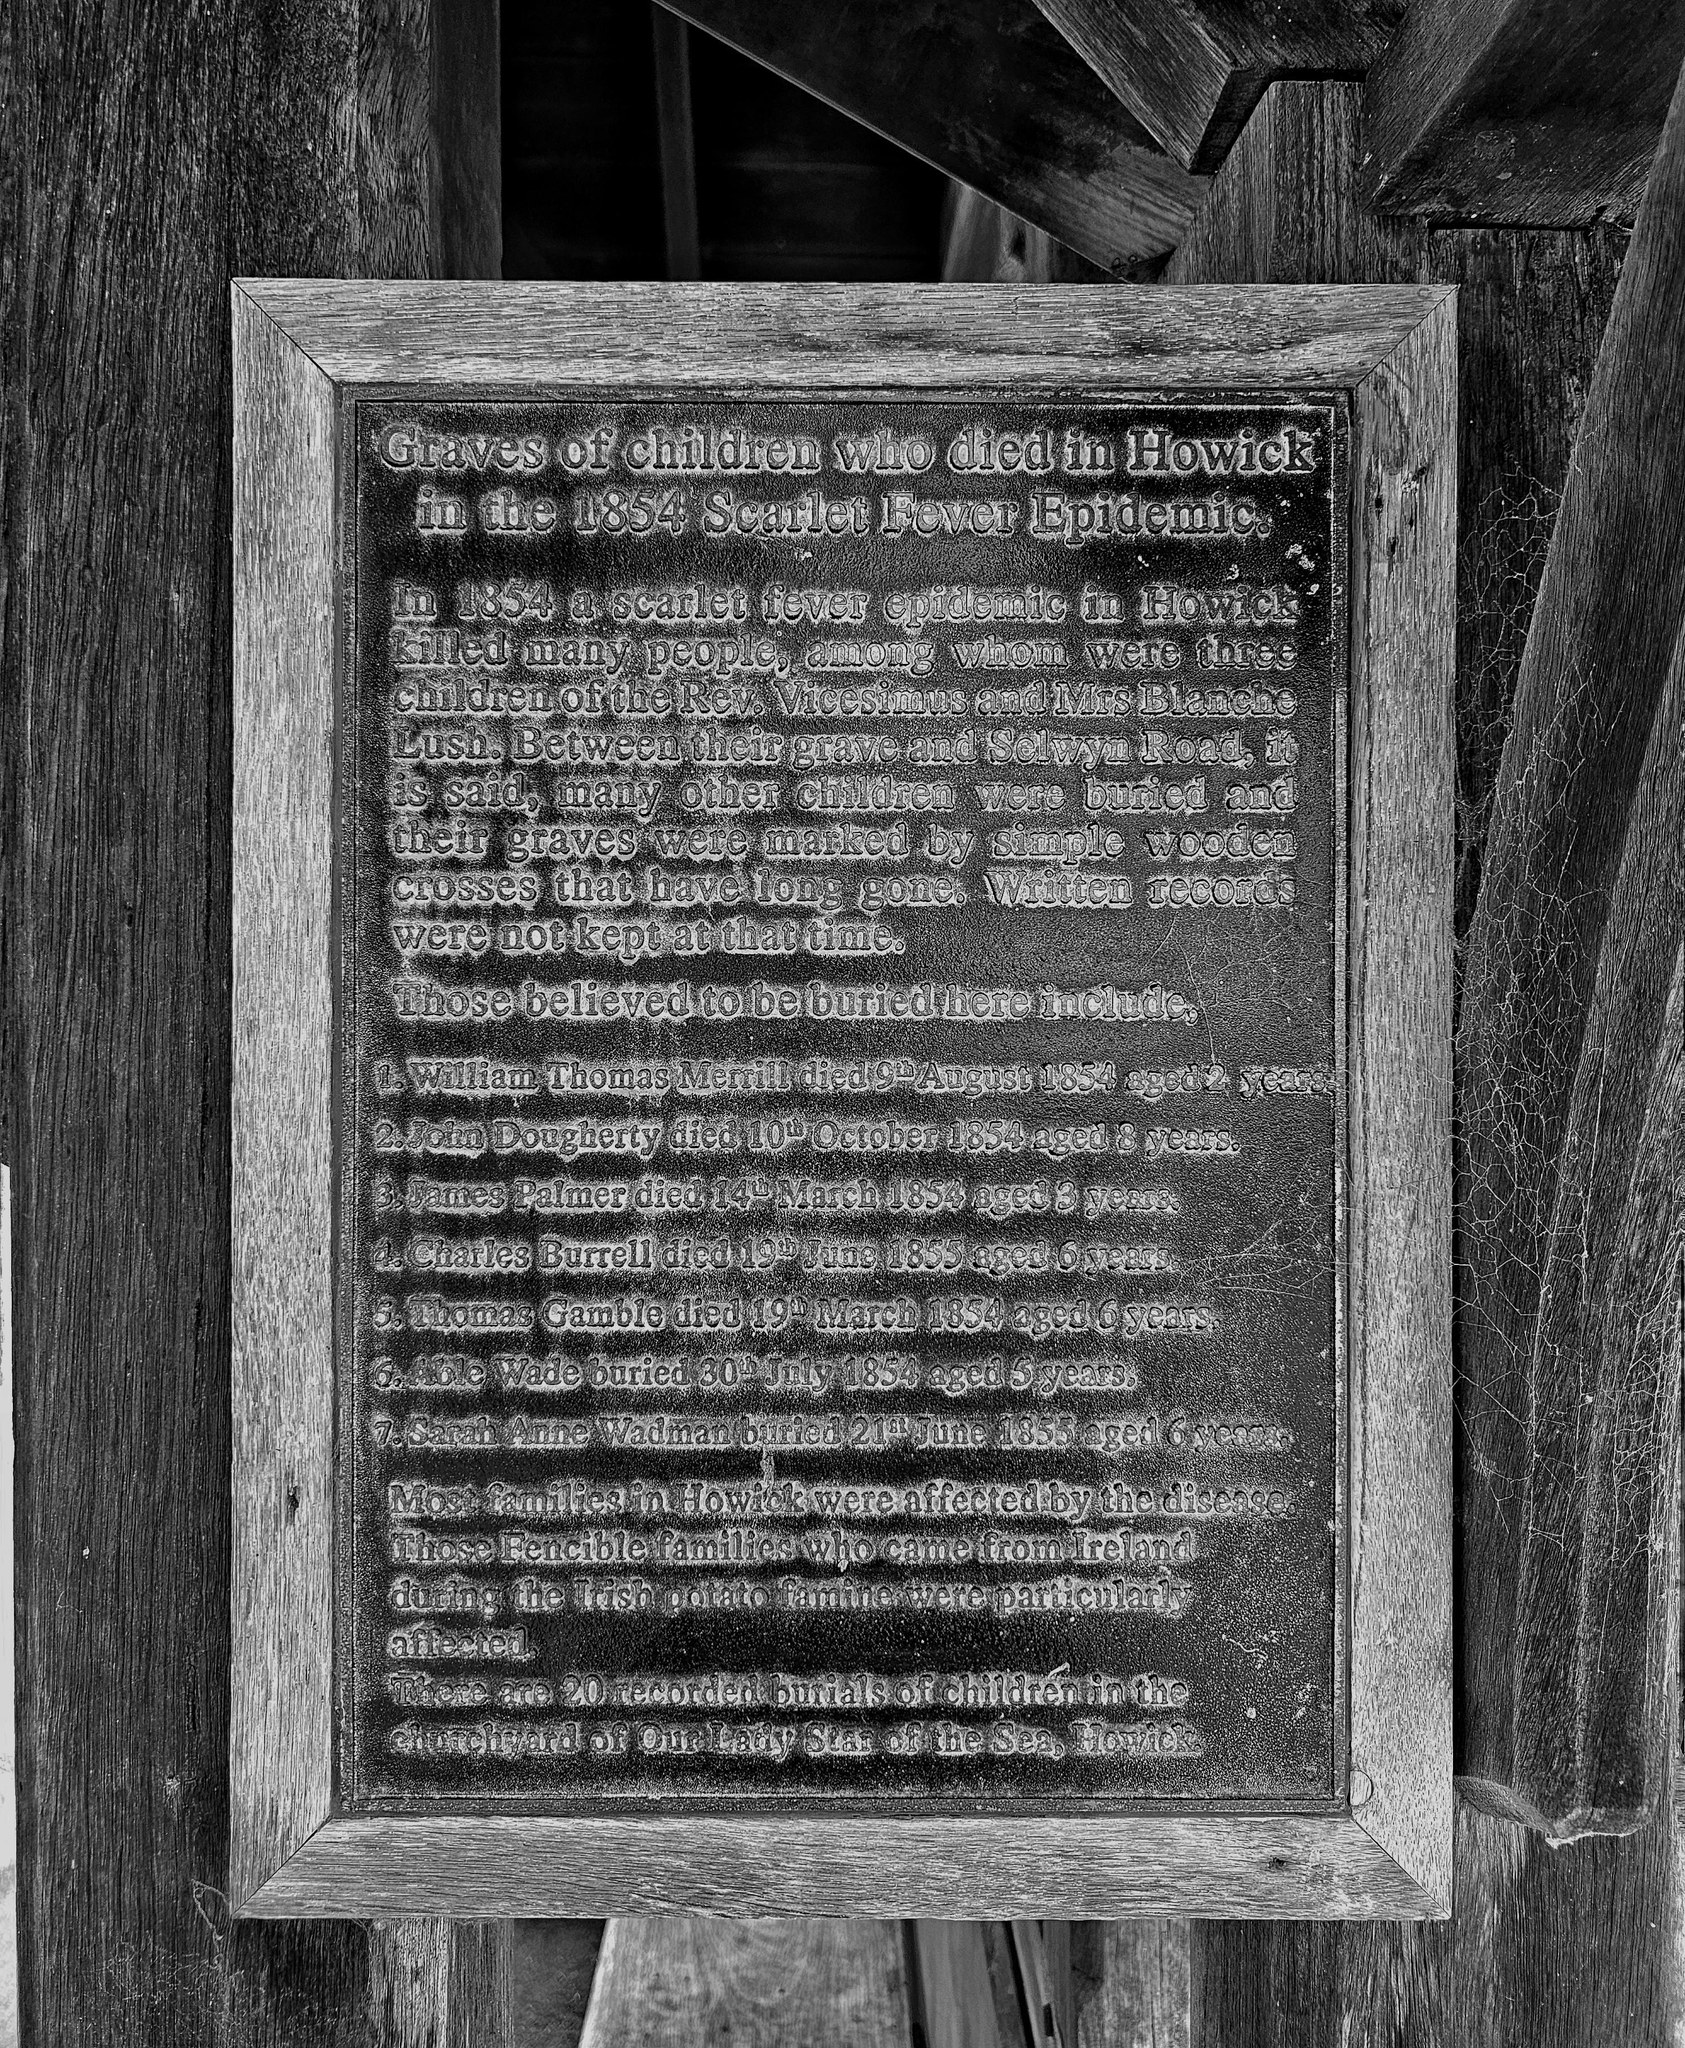 Graves of children who died in Howick
in the 1854 Scarlet Fever Epidemic.
In 1854 a scarlet fever epidemic in Howick
killed many people, among whom were three
children of the Rev. Vicesimus and Mrs Blanche
Lush. Between their grave and Selwyn Road, it
is said, many other children were buried and
their graves were marked by simple wooden
crosses that have long gone. Written records
were not kept at that time.
Those believed to be buried here include,
1. William Thomas Merrill died 9th August 1854 aged 2 years.
2. John Dougherty died 10th October 1854 aged 8 years.
3. James Palmer died 14th March 1854 aged 3 years.
4. Charles Burrell died 19th June 1855 aged 6 years.
5. Thomas Gamble died 19th March 1854 aged 6 years.
6. Able Wade buried 30th July 1854 aged 5 years.
7. Sarah Anne Wadman buried 21st June 1855 aged 6 years.
Most families in Howick were affected by the disease.
Those Fencible families who came from Ireland
during the Irish potato famine were particularly
affected.
There are 20 recorded burials of children in the
churchyard of Our Lady Star of the Sea, Howick.